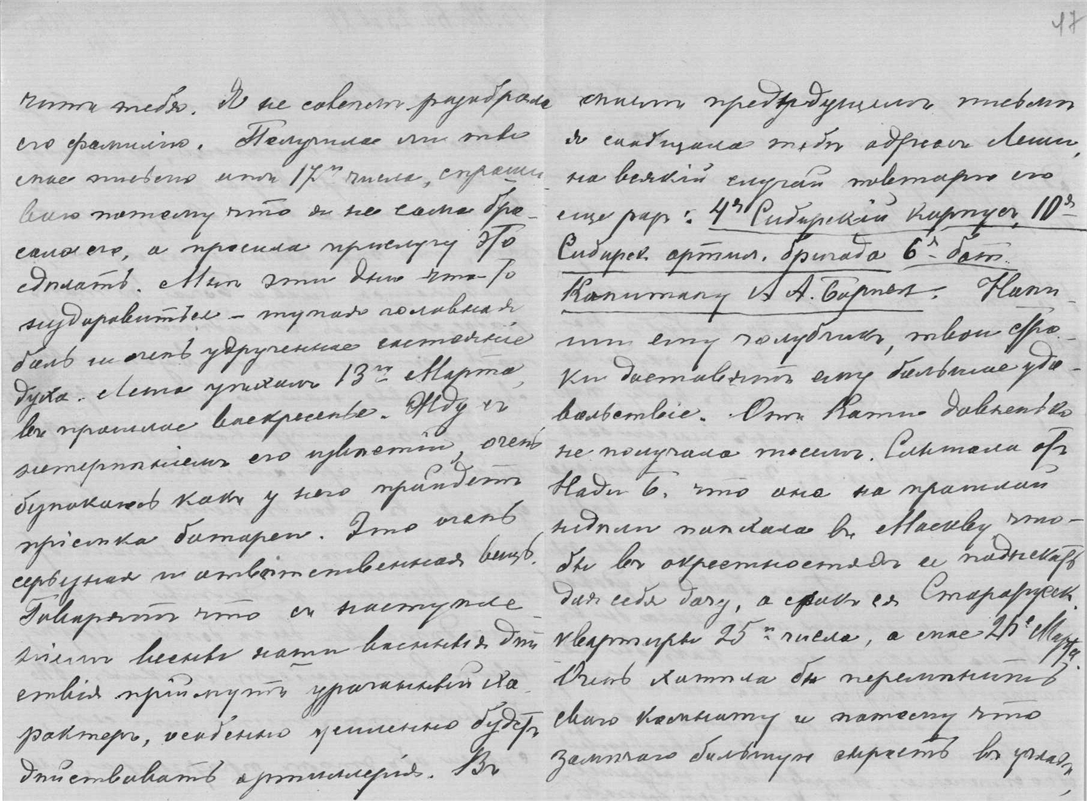 17
чить тебя. Я не совсем разобрала
его фамилию. Получила ли ты
мое письмо отъ 17го числа, спраши-
ваю потому что я не сама бро-
сала его, а просила прислугу это
сдѣлать. Мнѣ эти дни что-то
нездоровиться – тупая головная
боль и очень удрученное состояніе
духа. Леша уѣхалъ 13го Марта,
въ прошлое воскресенье. Жду съ
нетерпѣніемъ его извѣстій, очень
безпокоюсь какъ у него пройдетъ
пріемка батареи. Это очень
серьезная и отвѣтственная вещь.
Говорятъ что съ наступле-
ніемъ весны наши военныя дѣй
ствія приймутъ ха-
рактеръ, особенно усиленно будетъ
дѣйствовать артиллерія. Въ
моемъ предыдущемъ письмѣ
я сообщала тебѣ адресъ Леши,
на всякій случай повторяю его
еще разъ: 4й Сибирскій Корпусъ, 10я
Сибирск артил. бригада 6я бат.
Капитану А. А. Напи-
ши ему голубчикъ, твои стро-
ки доставятъ ему большое удо-
вольствіе. Отъ Кати давненько
не получала писемъ. Слыхала отъ
Нади Б. что она на прошлой
недѣли поѣхала въ Москву что-
бы въ окрестностяхъ ее подыскать
для себя дачу, а срокъ ея Старорусск.
квартиры 25го числа, а мне 26го Марта.
Очень хотѣла бы перемѣнить
свою комнату и потому что
замѣчаю большую сырость въ углахъ,